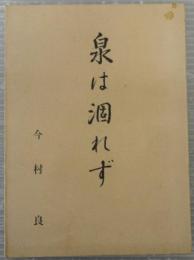 泉は涸れず
今村良